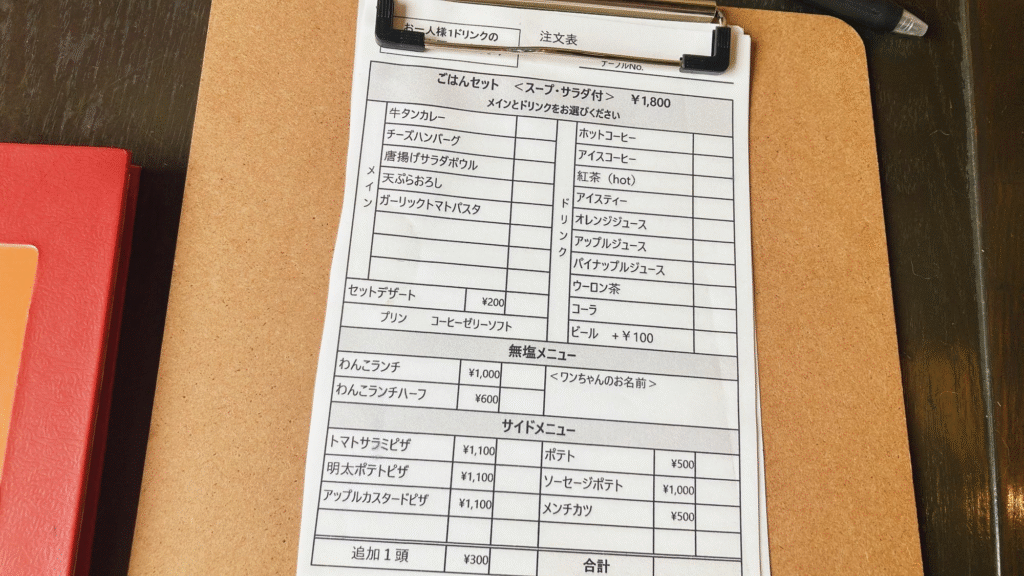 お一人様1ドリンクの
注文表
テーブルNo.
ごはんセット <スープ・サラダ付> ¥1,800
メインとドリンクをお選びください
メイン
牛タンカレー
チーズハンバーグ
唐揚げサラダボウル
天ぷらおろし
ガーリックトマトパスタ
セットデザート ¥200
プリン コーヒーゼリーソフト
ドリンク
ホットコーヒー
アイスコーヒー
紅茶(hot)
アイスティー
オレンジジュース
アップルジュース
パイナップルジュース
ウーロン茶
コーラ
ビール +¥100
無塩メニュー
わんこランチ ¥1,000
わんこランチハーフ ¥600
<ワンちゃんのお名前>
サイドメニュー
トマトサラミピザ ¥1,100
明太ポテトピザ ¥1,100
アップルカスタードピザ ¥1,100
ポテト ¥500
ソーセージポテト ¥1,000
メンチカツ ¥500
追加1頭 ¥300
合計